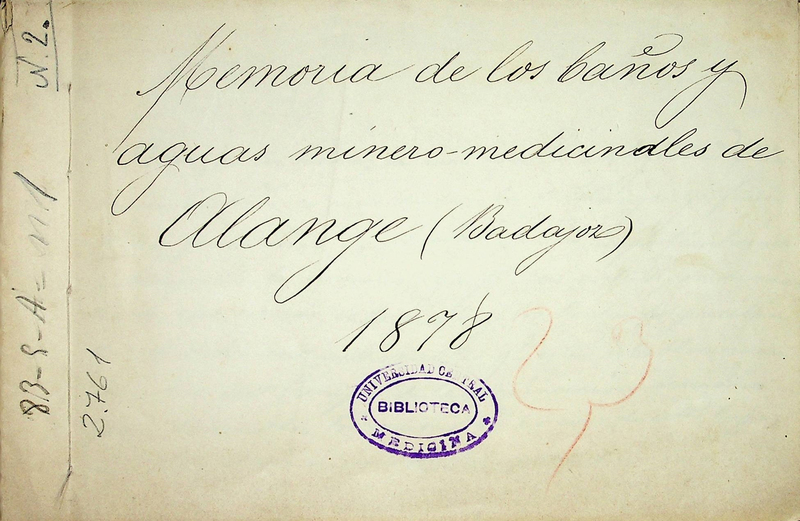 Memoria de los baños y
aguas minero-medicinales de
Alange (Badajoz)
1878
UNIVERSIDAD CENTRAL
BIBLIOTECA
MEDICINA
N. 2.
2.761